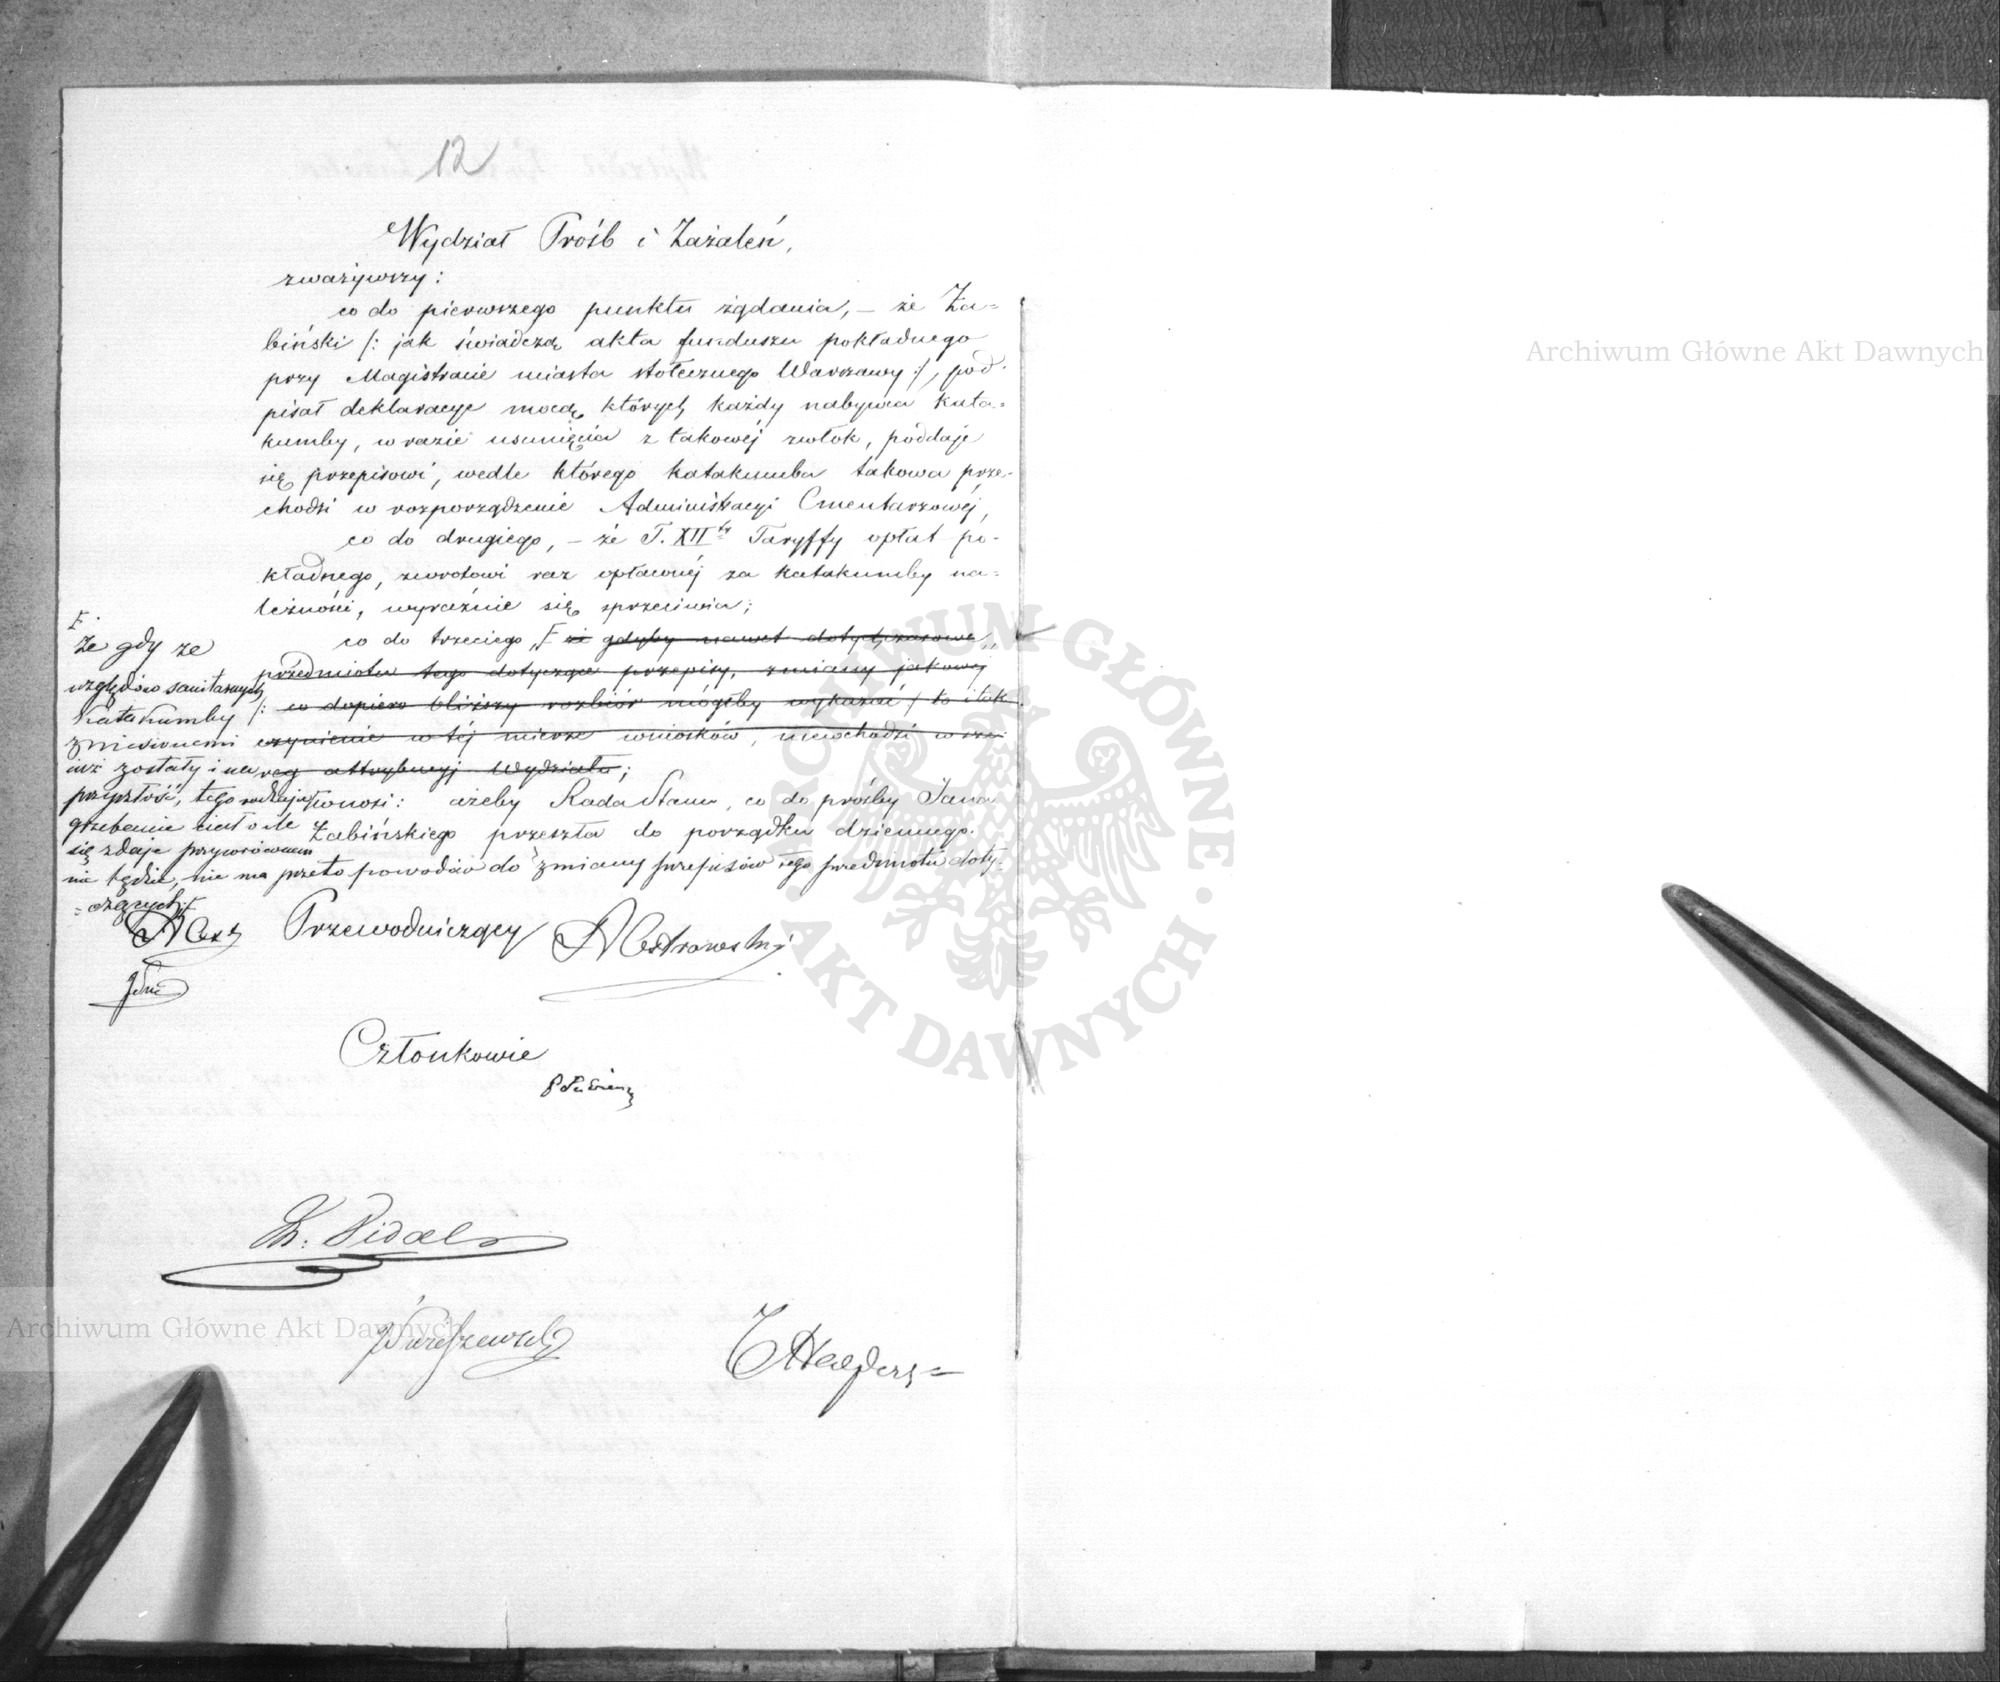 12
Wydział Próśb i Zażaleń,
zważywszy:
co do pierwszego punktu żądania, – że Ża=
biński /: jak świadczą akta funduszu pokładnego
przy Magistracie miasta stołecznego Warszawy :/, pod-
pisał deklaracye mocą których każdy nabywca kata=
kumby, w razie usunięcia z takowéj zwłok, poddaje
się przepisowi, wedle którego katakumba takowa prze-
chodzi w rozporządzenie Administracyi Cmentarzowéj,
co do drugiego, – że T. XII Taryffy opłat po-
kładnego, zwrotowi raz opłaconéj za katakumby na=
leżności, wyraźnie się sprzeciwia;
co do trzeciego, F że gdyby nawet dotychczasowe
przedmiotu tego dotyczące przepisy, zmiany jakowéj
/: co dopiero bliższy rozbiór mógłby wykazać / to i tak
czynienie w téj mierze wniosków, niewchodzi w
attrybucyj Wydziału;
wnosi: ażeby Rada Stanu, co do prośby Jana
Żabińskiego przeszła do porządku dziennego.
F.
że gdy ze
względów sanitarnych
Katakumby
zniesionemi
już zostały i na
przyszłość, tego rodzaju
grzebanie ciał o ile
się zdaje przywróconem
nie będzie, nie ma przeto powodów do zmiany przepisów tego przedmiotu doty-
=czących F
Przewodniczący
Członkowie
Archiwum Główne Akt Dawnych
Archiwum Główne Akt Dawnych
ARCHIWUM GŁÓWNE · AKT DAWNYCH ·